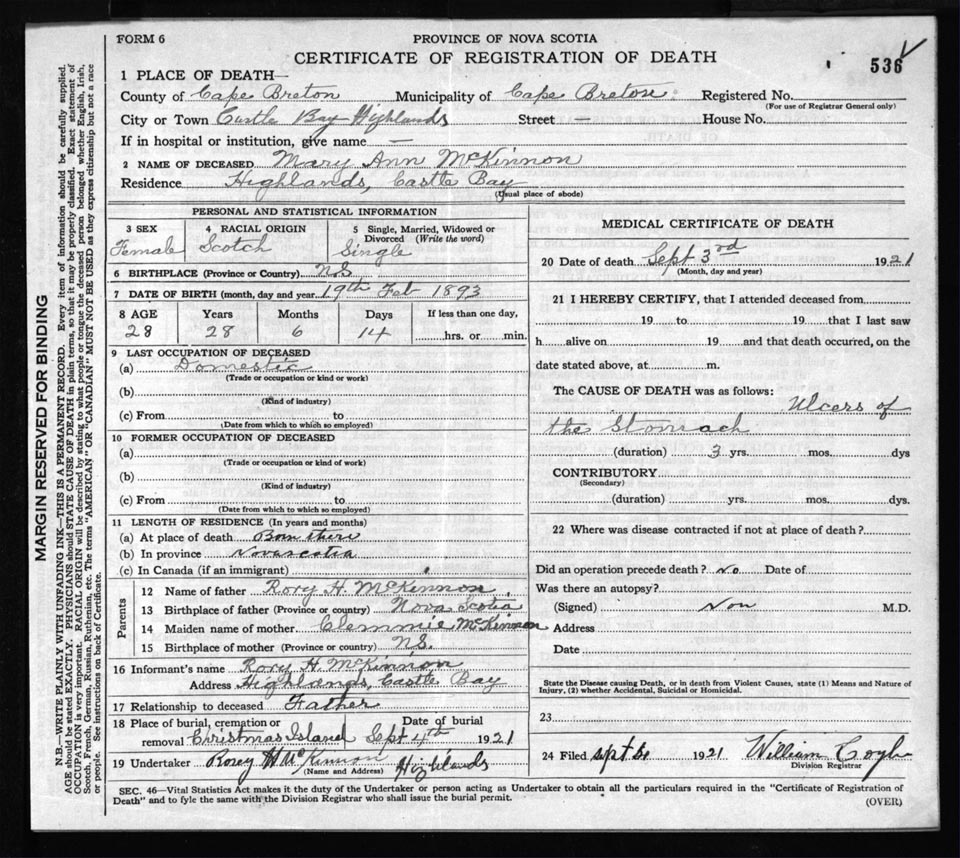 FORM 6
PROVINCE OF NOVA SCOTIA
CERTIFICATE OF REGISTRATION OF DEATH
536
1 PLACE OF DEATH—
County of Cape Breton Municipality of Cape Breton Registered No.
(For use of Registrar General only)
City or Town Castle Bay Highlands Street — House No.
If in hospital or institution, give name —
2 NAME OF DECEASED Mary Ann McKinnon
Residence Highlands, Castle Bay
(Usual place of abode)
PERSONAL AND STATISTICAL INFORMATION
3 SEX Female
4 RACIAL ORIGIN Scotch
5 Single, Married, Widowed or Divorced (Write the word) Single
6 BIRTHPLACE (Province or Country) N.S.
7 DATE OF BIRTH (month, day and year) 19th Feb 1893
8 AGE Years Months Days If less than one day,
28 28 6 14 hrs. or min.
9 LAST OCCUPATION OF DECEASED
(a) Domestic
(Trade or occupation or kind or work)
(b)
(Kind of industry)
(c) From to
(Date from which to which so employed)
10 FORMER OCCUPATION OF DECEASED
(a)
(Trade or occupation or kind of work)
(b)
(Kind of industry)
(c) From to
(Date from which to which so employed)
11 LENGTH OF RESIDENCE (In years and months)
(a) At place of death Born there
(b) In province Novascotia
(c) In Canada (if an immigrant)
Parents
12 Name of father Rory H. McKinnon
13 Birthplace of father (Province or country) Nova Scotia
14 Maiden name of mother Clemmie McKinnon
15 Birthplace of mother (Province or country) N.S.
16 Informant's name Rory H. McKinnon
Address Highlands, Castle Bay
17 Relationship to deceased Father
18 Place of burial, cremation or removal Christmas Island Date of burial Sept 4th 1921
19 Undertaker Rorey H McKinnon Highlands
(Name and Address)
MEDICAL CERTIFICATE OF DEATH
20 Date of death Sept 3rd 1921
(Month, day and year)
21 I HEREBY CERTIFY, that I attended deceased from
19 to 19 that I last saw
h alive on 19 and that death occurred, on the
date stated above, at m.
The CAUSE OF DEATH was as follows:
Ulcers of
the Stomach
(duration) 3 yrs. mos. dys
CONTRIBUTORY
(Secondary)
(duration) yrs. mos. dys.
22 Where was disease contracted if not at place of death?
Did an operation precede death? No Date of
Was there an autopsy?
(Signed) Non M.D.
Address
Date
State the Disease causing Death, or in death from Violent Causes, state (1) Means and Nature of
Injury, (2) whether Accidental, Suicidal or Homicidal.
23
24 Filed Sept 1921 William
Division Registrar
SEC. 46—Vital Statistics Act makes it the duty of the Undertaker or person acting as Undertaker to obtain all the particulars required in the "Certificate of Registration of
Death" and to fyle the same with the Division Registrar who shall issue the burial permit.
(OVER)
MARGIN RESERVED FOR BINDING
N.B.—WRITE PLAINLY WITH UNFADING INK—THIS IS A PERMANENT RECORD. Every item of information should be carefully supplied.
AGE should be stated EXACTLY. PHYSICIANS should STATE CAUSE OF DEATH in plain terms, so that it may be properly classified. Exact statement of
OCCUPATION is very important. RACIAL ORIGIN will be described by stating to what people or tongue the deceased person belonged whether English, Irish,
Scotch, French, German, Russian, Ruthenian, etc. The terms "AMERICAN" or "CANADIAN" MUST NOT BE USED as they express citizenship but not a race
or people. See instructions on back of Certificate.